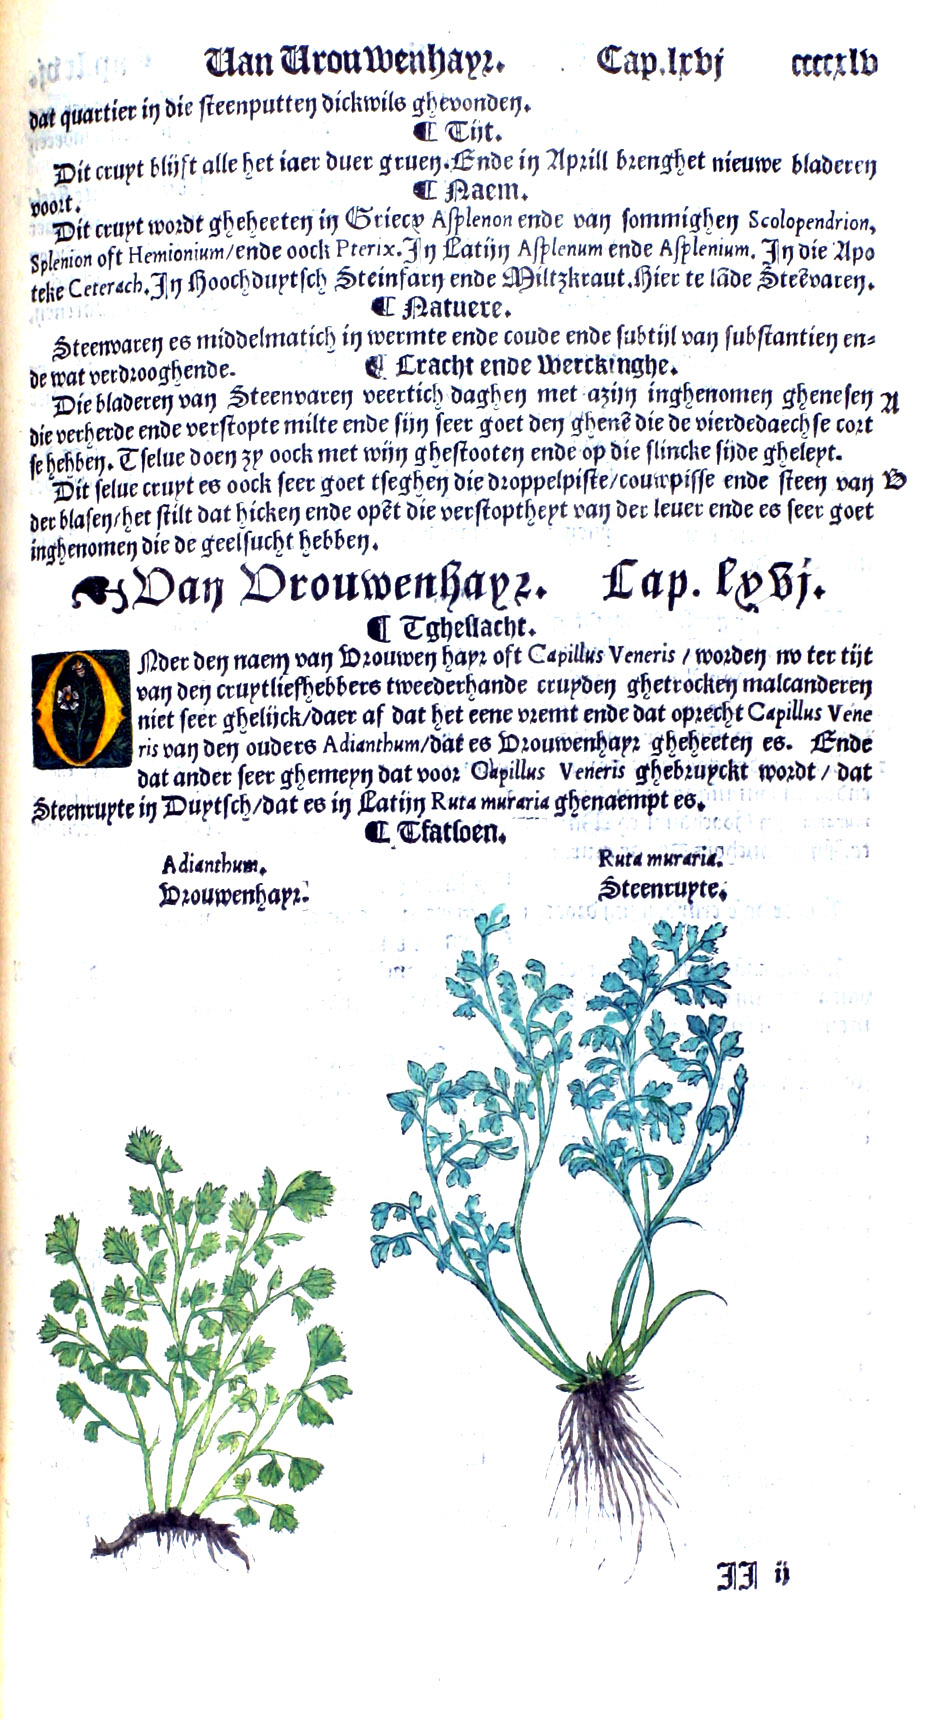 Van Vrouwenhayr. Cap.lxvj ccccxlv
dat quartier in die steenputten dickwils ghevonden.
¶ Tijt.
Dit cruyt blijft alle het iaer duer gruen. Ende in Aprill brenghet nieuwe bladeren
voort.
¶ Naem.
Dit cruyt wordt gheheeten in Griecx Asplenon ende van sommighen Scolopendrion,
Splenion oft Hemionium/ende oock Pterix. In Latijn Asplenum ende Asplenium. In die Apo
teke Ceterach. In Hoochduytsch Steinfarn ende Miltzkraut. Hier te lãde Steẽvaren.
¶ Natuere.
Steenvaren es middelmatich in wermte ende coude ende subtijl van substantien en⸗
de wat verdrooghende.
¶ Cracht ende Werckinghe.
Die bladeren van Steenvaren veertich daghen met azijn inghenomen ghenesen A
die verherde ende verstopte milte ende sijn seer goet den ghenẽ die de vierdedaechse cort
se hebben. Tselue doen zy oock met wijn ghestooten ende op die slincke sijde gheleyt.
Dit selue cruyt es oock seer goet tseghen die droppelpisse/couwpisse ende steen van B
der blasen/het stilt dat hicken ende opẽt die verstoptheyt van der leuer ende es seer goet
inghenomen die de geelsucht hebben.
Van Vrouwenhayr. Cap. lxvj.
¶ Tgheslacht.
ONder den naem van Vrouwen hayr oft Capillus Veneris / worden nv ter tijt
van den cruytliefhebbers tweederhande cruyden ghetrocken malcanderen
niet seer ghelijck/daer af dat het eene vremt ende dat oprecht Capillus Vene
ris van den ouders Adianthum/dat es Vrouwenhayr gheheeten es. Ende
dat ander seer ghemeyn dat voor Capillus Veneris ghebruyckt wordt / dat
Steenruyte in Duytsch/dat es in Latijn Ruta muraria ghenaempt es.
¶ Tfatsoen.
Adianthum. Ruta muraria.
Vrouwenhayr. Steenruyte.
II ij